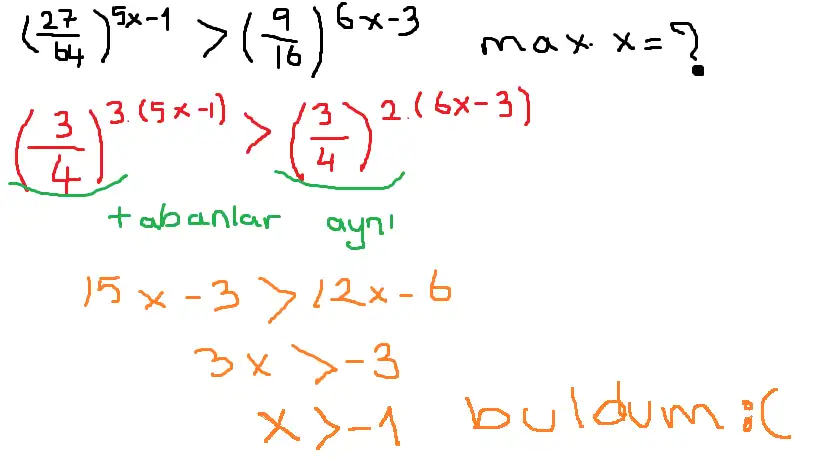 (27/64)^5x-1 > (9/16)^6x-3 max. x = ?
(3/4)^3.(5x-1) > (3/4)^2.(6x-3)
tabanlar aynı
15x-3 > 12x-6
3x > -3
x > -1 buldum :(